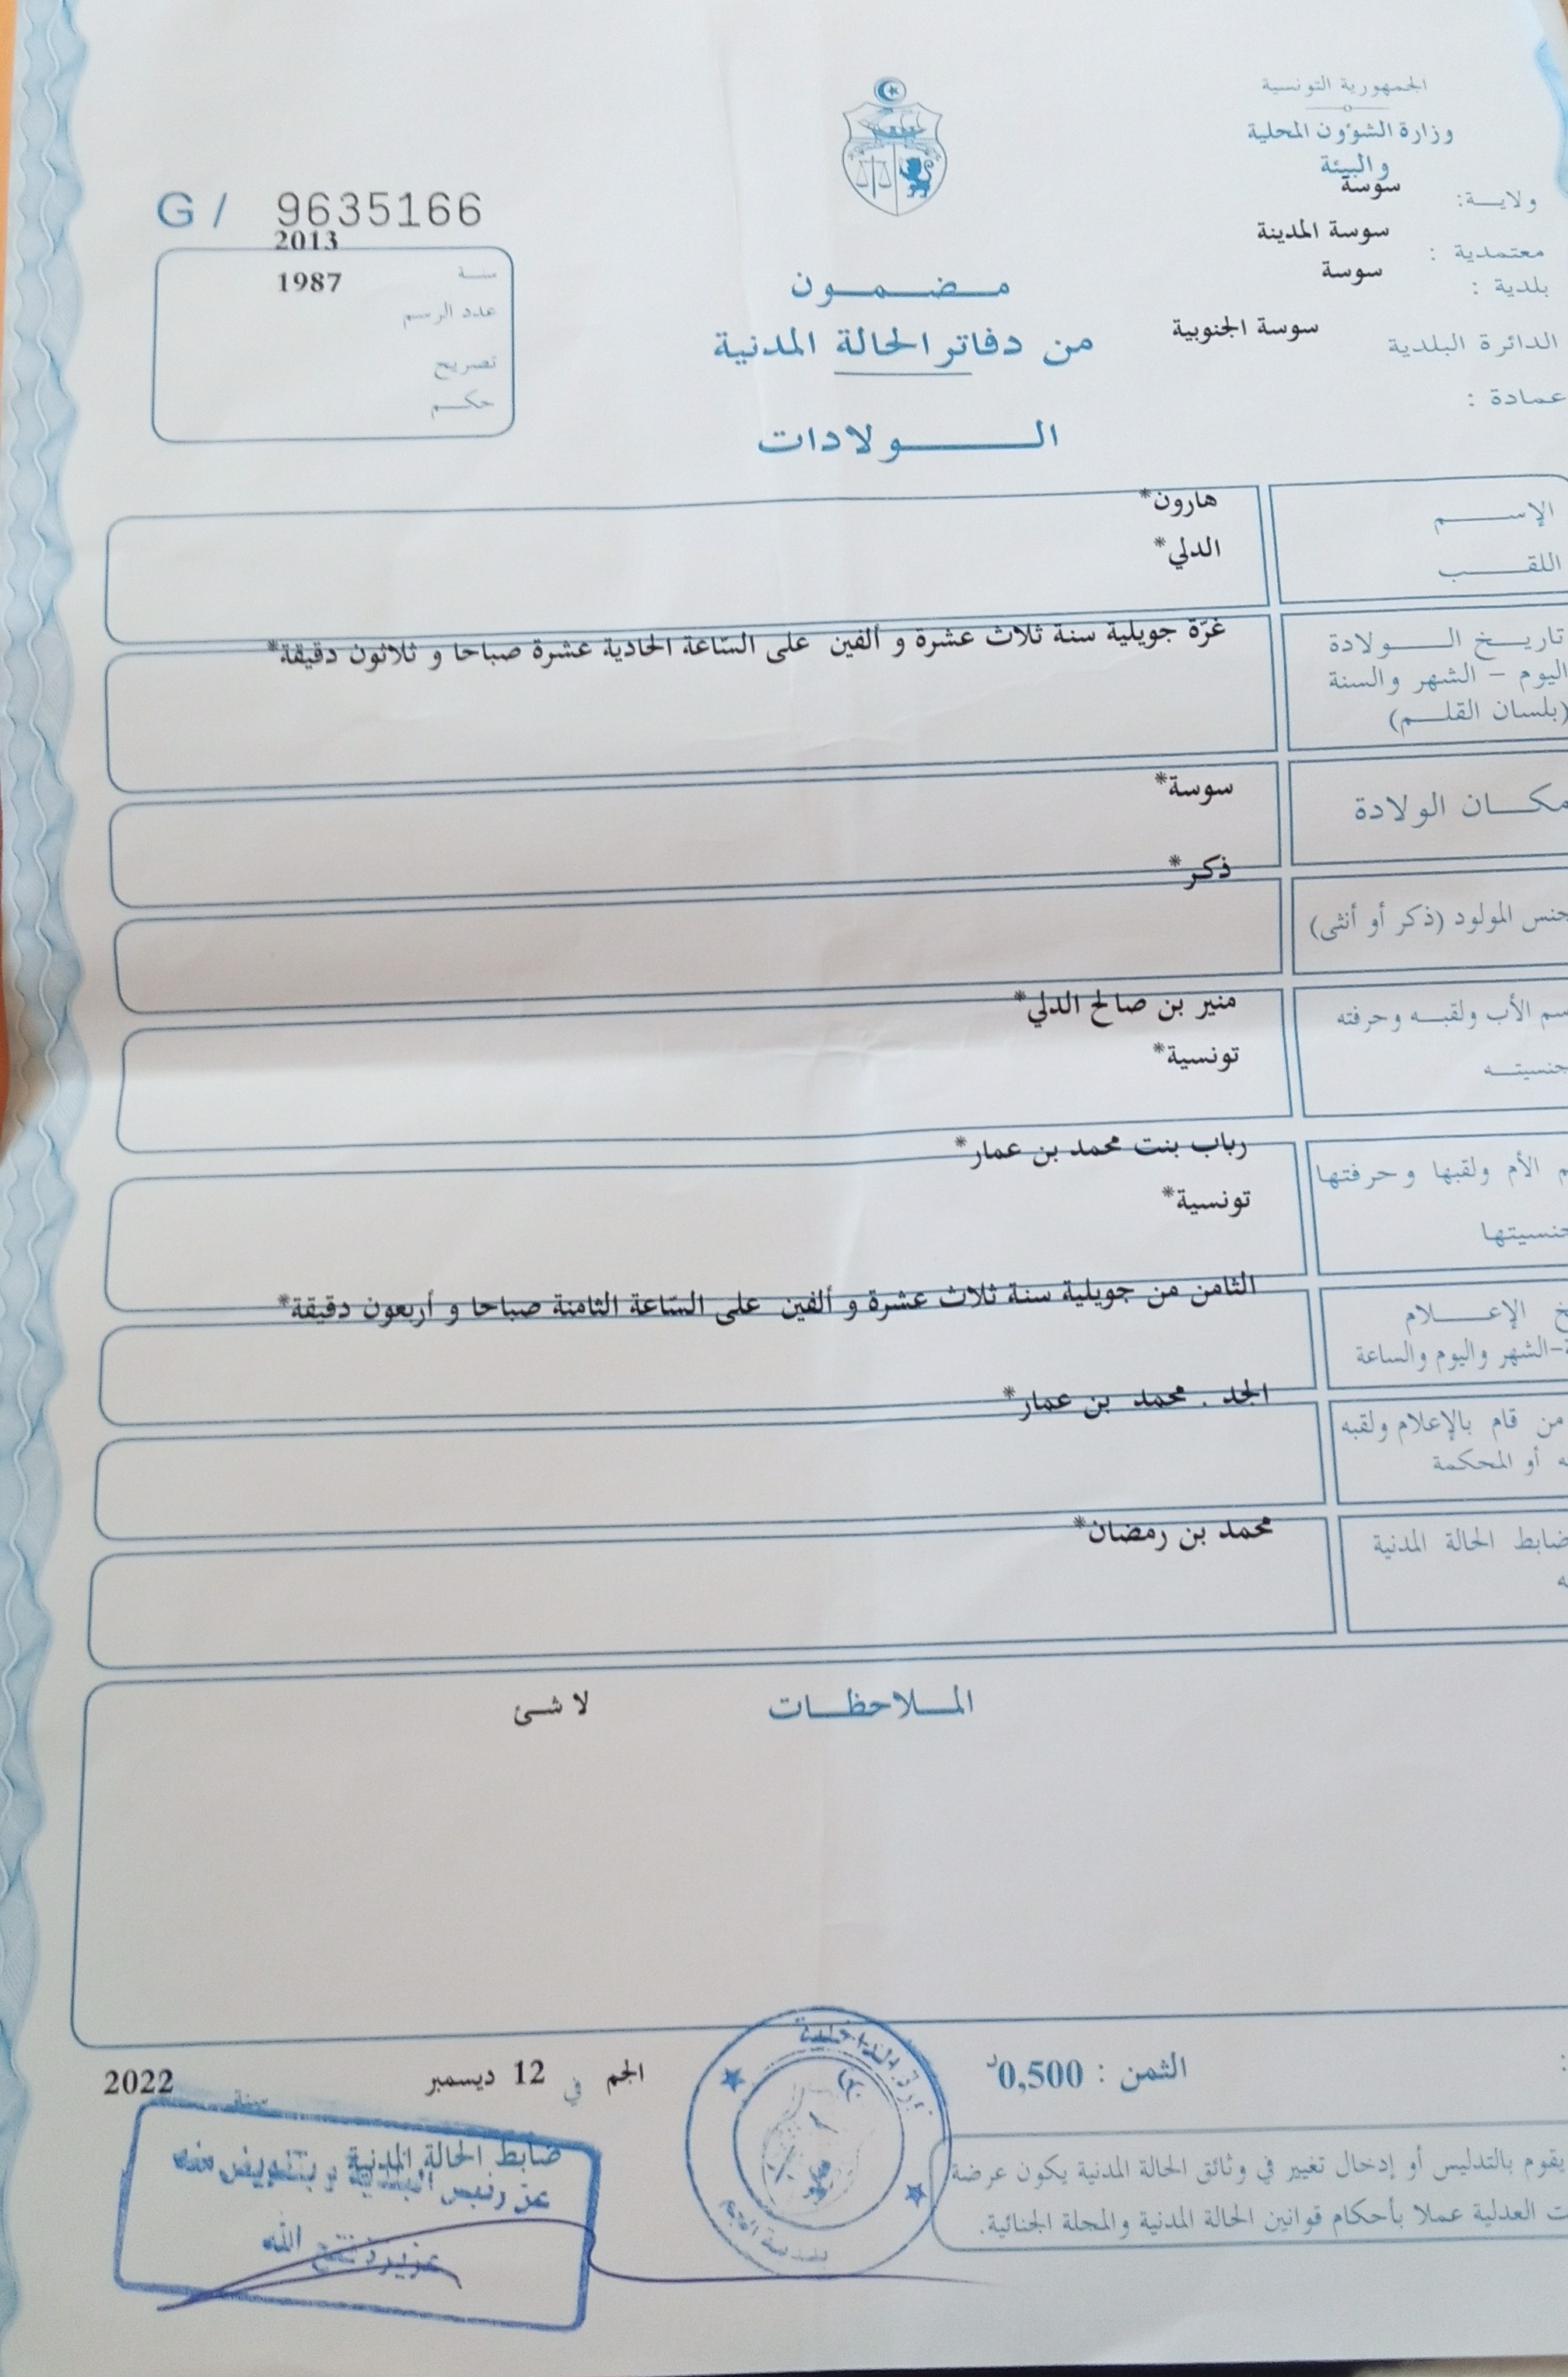 الجمهورية التونسية
وزارة الشؤون المحلية
والبيئة
ولاية: سوسة
معتمدية : سوسة المدينة
بلدية : سوسة
الدائرة البلدية سوسة الجنوبية
عمادة :
G / 9635166
2013
سنة
1987
عدد الرسم
تصريح
حكم
مضمون
من دفاتر الحالة المدنية
الولادات
الإسم هارون*
اللقب الدلي*
تاريخ الولادة غرّة جويلية سنة ثلاث عشرة و ألفين على السّاعة الحادية عشرة صباحا و ثلاثون دقيقة*
اليوم - الشهر والسنة
(بلسان القلم)
مكان الولادة سوسة*
ذكر*
جنس المولود (ذكر أو أنثى)
سم الأب ولقبه وحرفته منير بن صالح الدلي*
جنسيته تونسية*
م الأم ولقبها وحرفتها رباب بنت محمد بن عمار*
جنسيتها تونسية*
الثامن من جويلية سنة ثلاث عشرة و ألفين على السّاعة الثامنة صباحا و أربعون دقيقة*
خ الإعلام
ة-الشهر واليوم والساعة
الجد . محمد بن عمار*
من قام بالإعلام ولقبه
ه أو المحكمة
محمد بن رمضان*
ضابط الحالة المدنية
ه
الملاحظات لا شئ
الثمن : 0,500د
الجم في 12 ديسمبر سنة 2022
يقوم بالتدليس أو إدخال تغيير في وثائق الحالة المدنية يكون عرضة
ت العدلية عملا بأحكام قوانين الحالة المدنية والمجلة الجنائية.
ضابط الحالة المدنية
عن رئيس البلدية و بتفويض منه
فتح الله